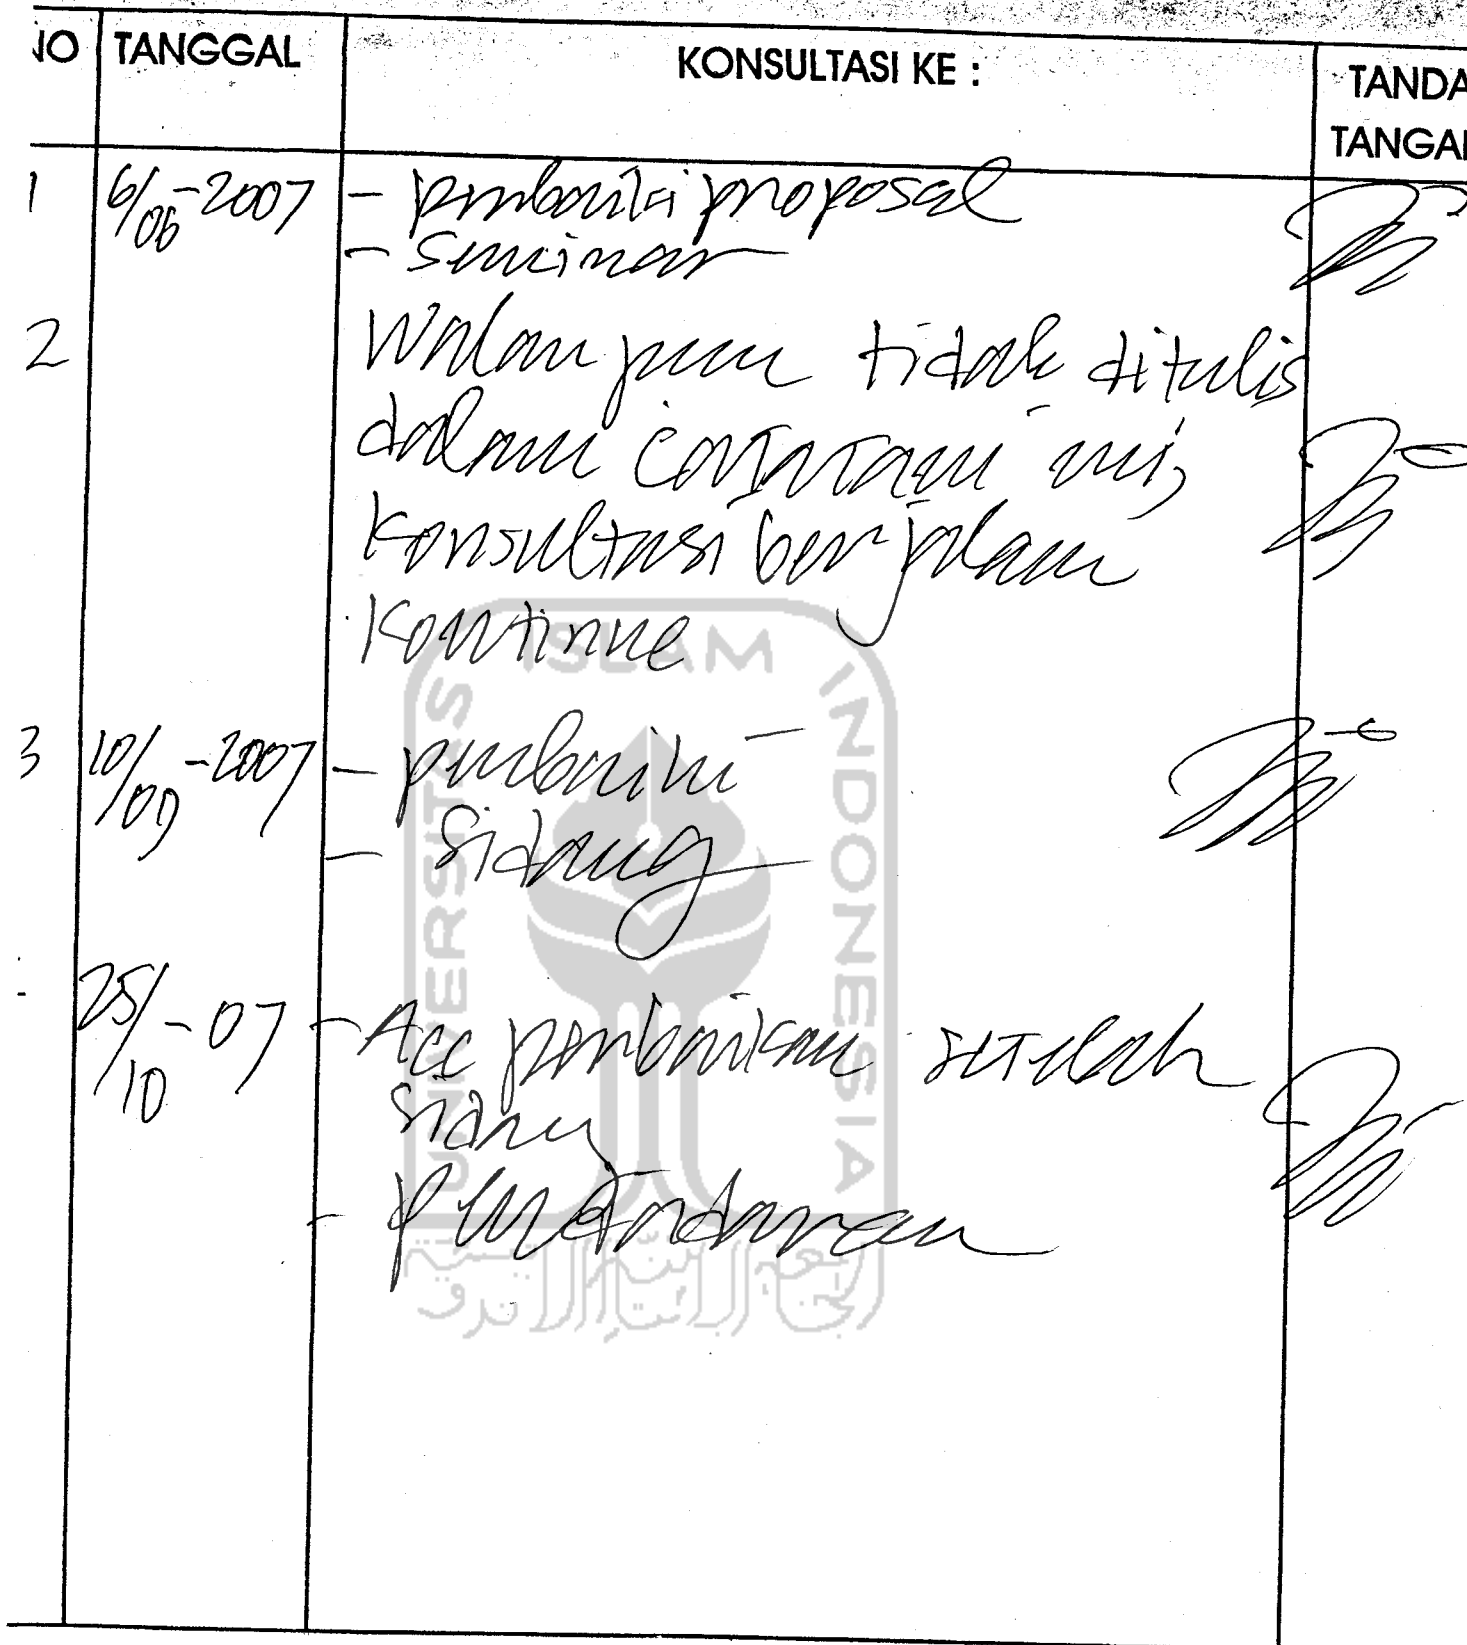 NO TANGGAL KONSULTASI KE : TANDA
TANGAN
1 6/06-2007 - perbaiki proposal
- Seminar
2 Walau pun tidak ditulis
dalam catatan ini,
Konsultasi berjalan
Kontinue
3 10/09-2007 - perbaiki
- Sidang
25/10-07 - Acc perbaikan setelah
sidang
- pendadaran
UNIVERSITAS ISLAM INDONESIA